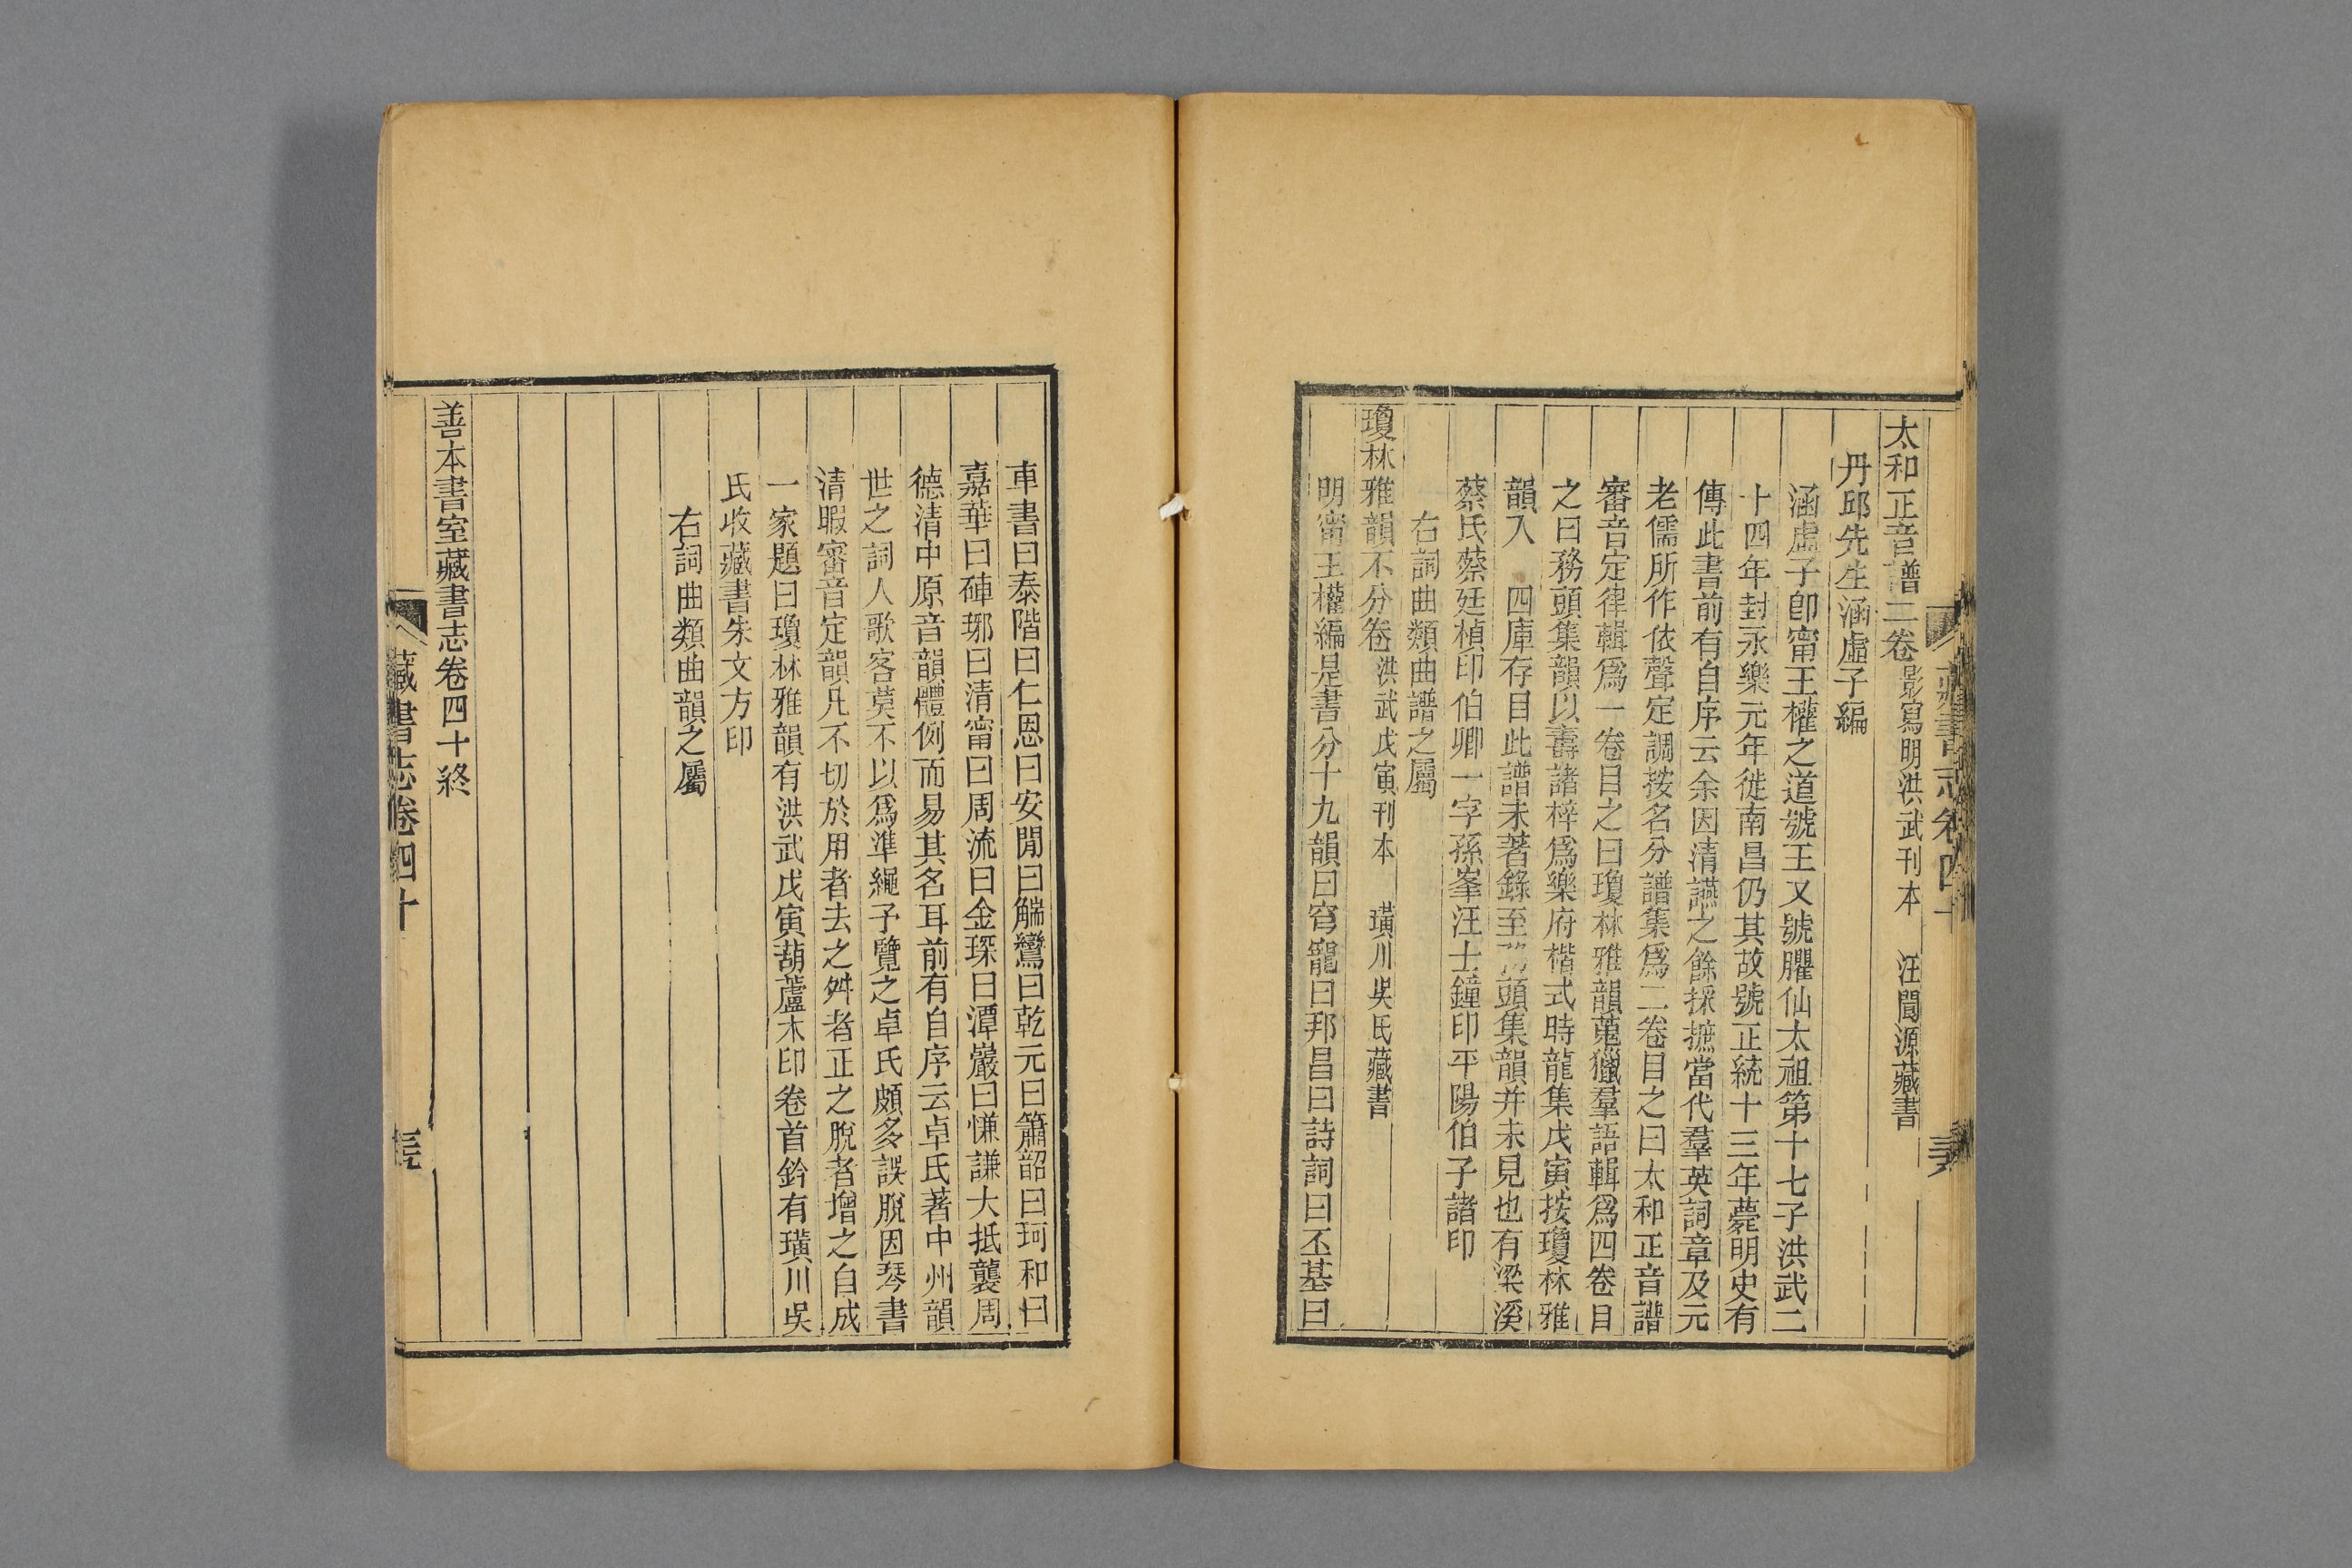 太和正音譜二卷 影寫明洪武刊本 汪閬源藏書
丹邱先生涵虛子編
涵虛子卽甯王權之道號王又號臞仙太祖第十七子洪武二
十四年封永樂元年徙南昌仍其故號正統十三年薨明史有
傳此書前有自序云余因清讌之餘採摭當代羣英詞章及元
老儒所作依聲定調按名分譜集爲二卷目之曰太和正音譜
審音定律輯爲一卷目之曰瓊林雅韻蒐獵羣語輯爲四卷目
之曰務頭集韻以壽諸梓爲樂府楷式時龍集戊寅按瓊林雅
韻入 四庫存目此譜未著錄至 頭集韻并未見也有梁溪
蔡氏蔡廷楨印伯卿一字孫峯汪士鐘印平陽伯子諸印
右詞曲類曲譜之屬
瓊林雅韻不分卷 洪武戊寅刊本 璜川吳氏藏書
明甯王權編是書分十九韻曰穹窿曰邦昌曰詩詞曰丕基曰
車書曰泰階曰仁恩曰安閒曰鵷鸞曰乾元曰簫韶曰珂和曰
嘉華曰硨琊曰清甯曰周流曰金琛曰潭巖曰慊謙大抵襲周
德清中原音韻體例而易其名耳前有自序云卓氏著中州韻
世之詞人歌客莫不以爲準繩予覽之卓氏頗多誤脫因琴書
清暇審音定韻凡不切於用者去之舛者正之脫者增之自成
一家題曰瓊林雅韻有洪武戊寅葫蘆木印卷首鈐有璜川吳
氏收藏書朱文方印
右詞曲類曲韻之屬
善本書室藏書志卷四十終
藏書志卷四十